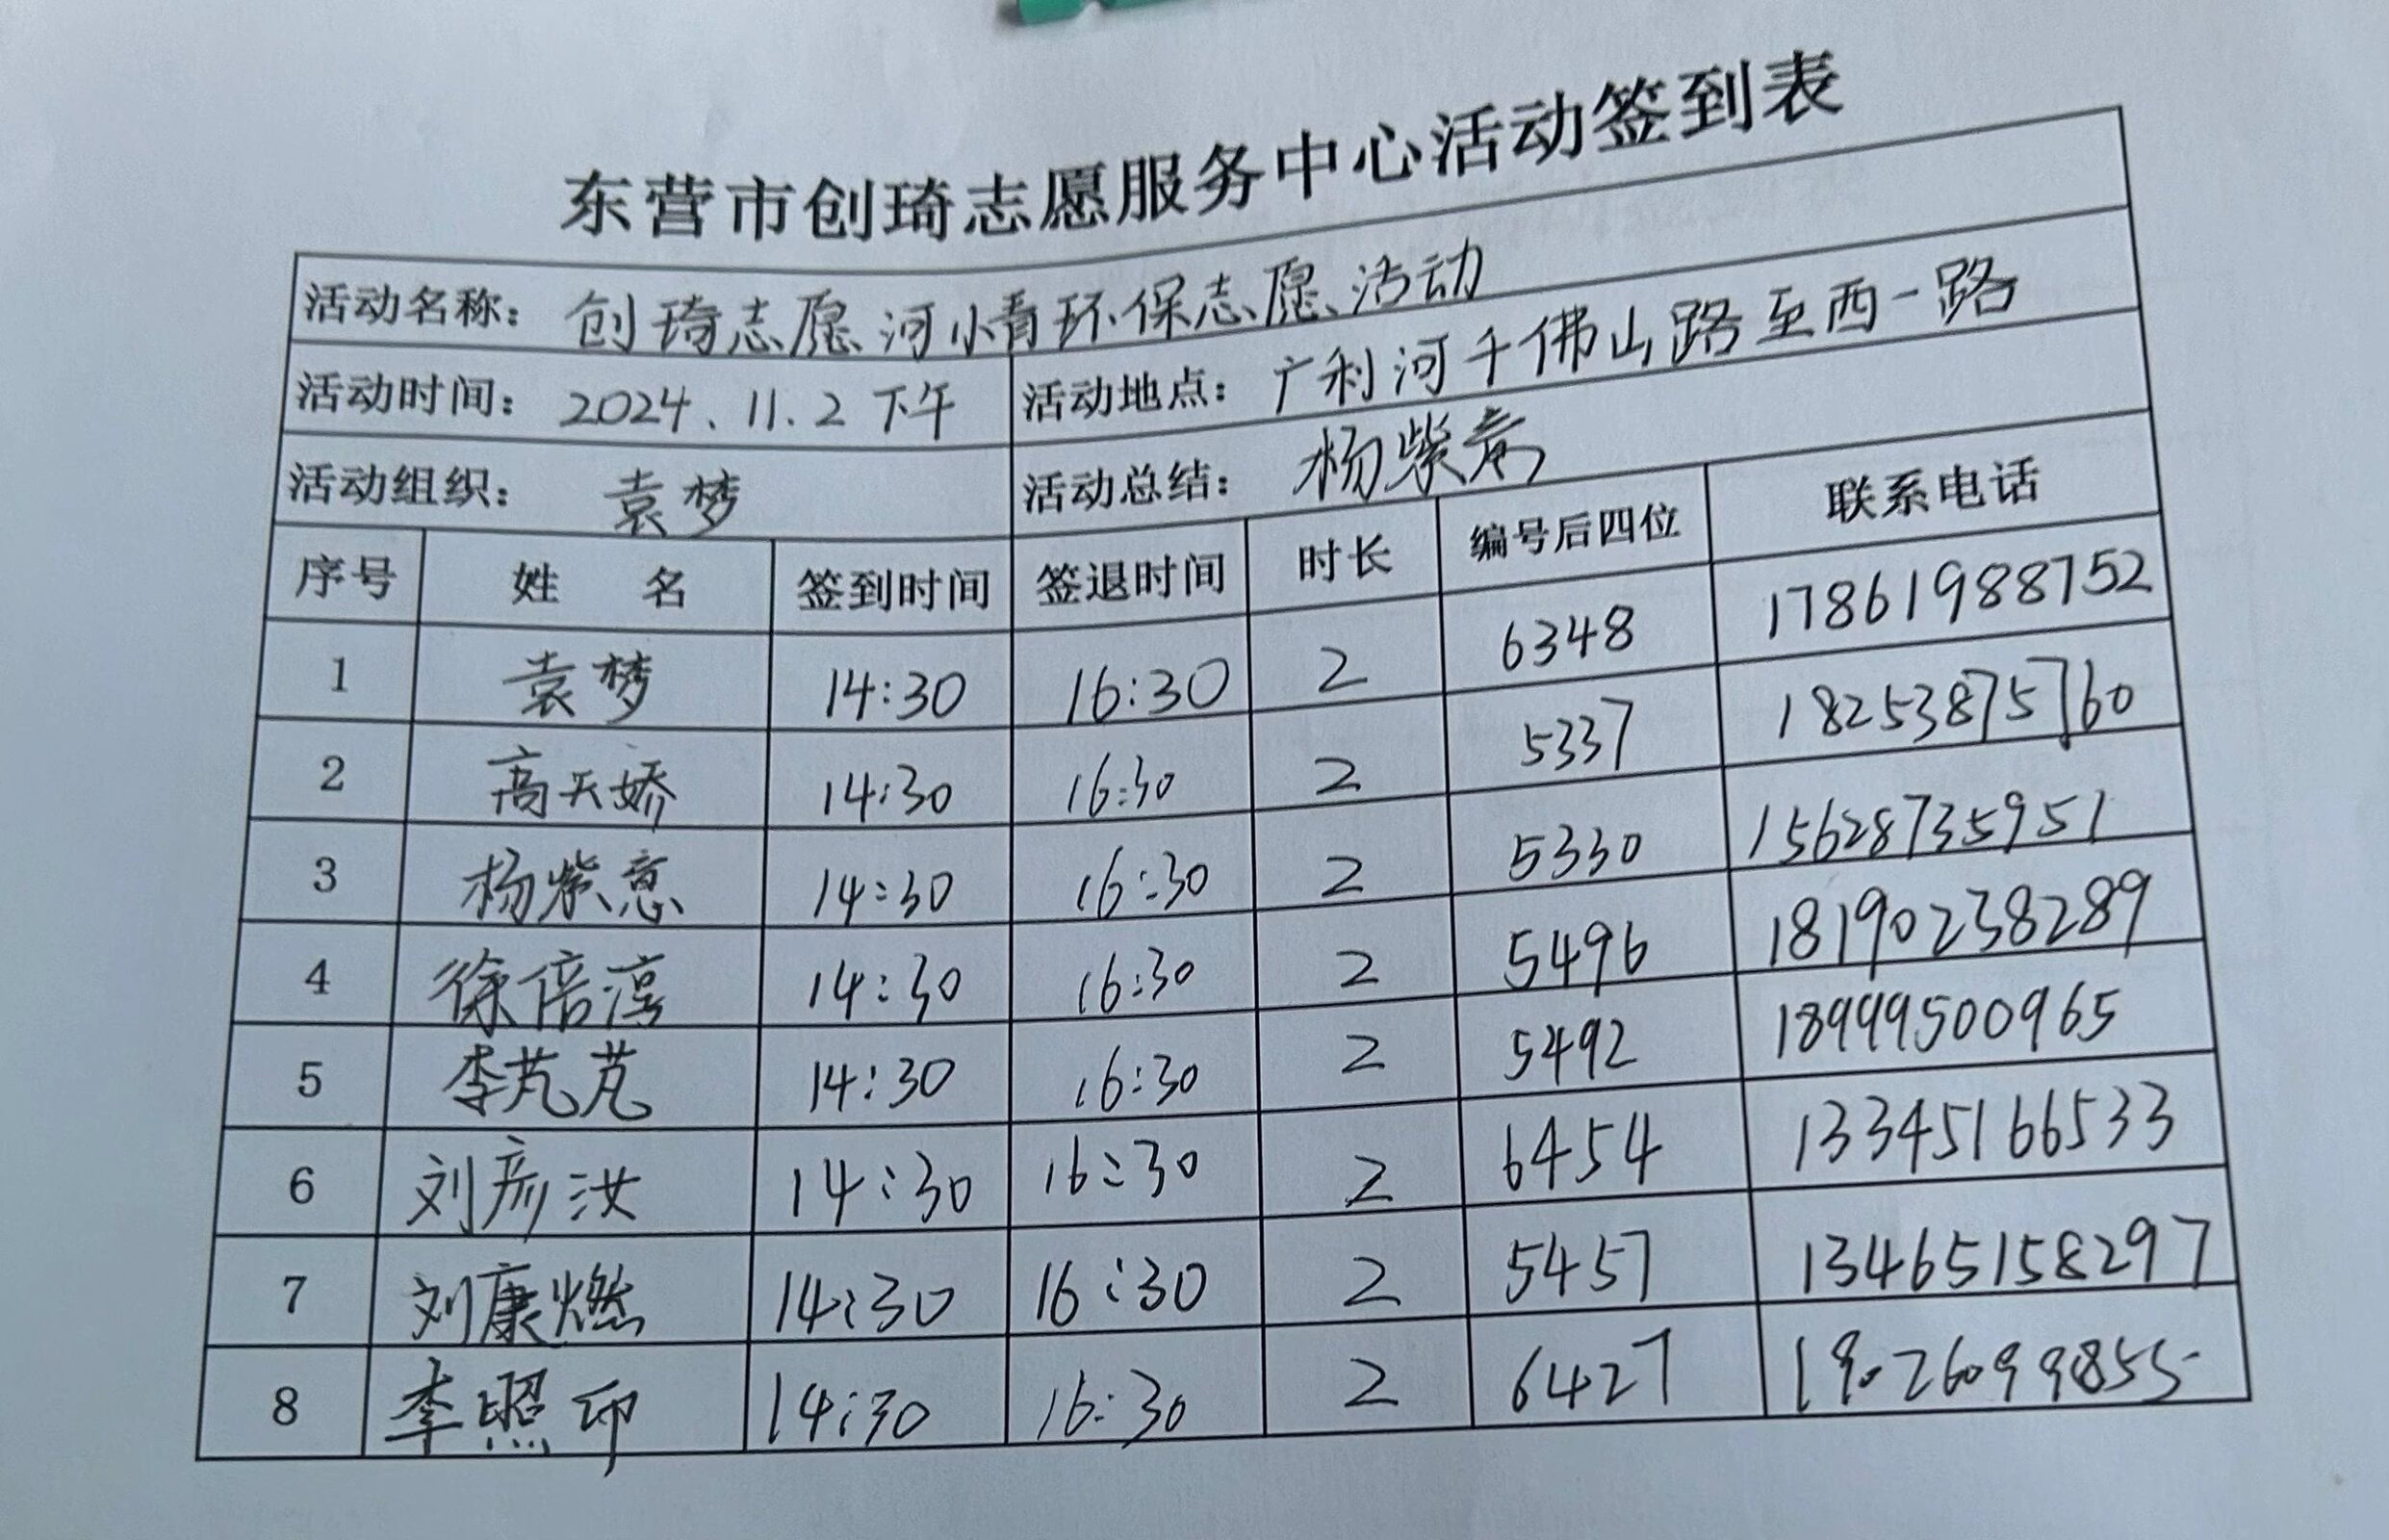 东营市创琦志愿服务中心活动签到表
活动名称: 创琦志愿河小青环保志愿活动
活动时间: 2024.11.2下午 活动地点: 广利河千佛山路至西一路
活动组织: 袁梦 活动总结: 杨紫意
序号 姓 名 签到时间 签退时间 时长 编号后四位 联系电话
1 袁梦 14:30 16:30 2 6348 17861988752
2 高天娇 14:30 16:30 2 5337 18253875760
3 杨紫意 14:30 16:30 2 5330 15628735951
4 徐倍淳 14:30 16:30 2 5496 18190238289
5 李芃芃 14:30 16:30 2 5492 18999500965
6 刘彦汝 14:30 16:30 2 6454 13345166533
7 刘康燃 14:30 16:30 2 5457 13465158297
8 李照印 14:30 16:30 2 6427